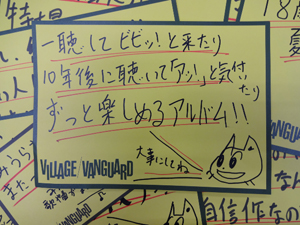 一聴してビビッ!と来たり
10年後に聴いて「アッ!」と気付いたり
ずっと楽しめるアルバム!!
大事にしてね
VILLAGE/VANGUARD
VANGUARD
自信作なの